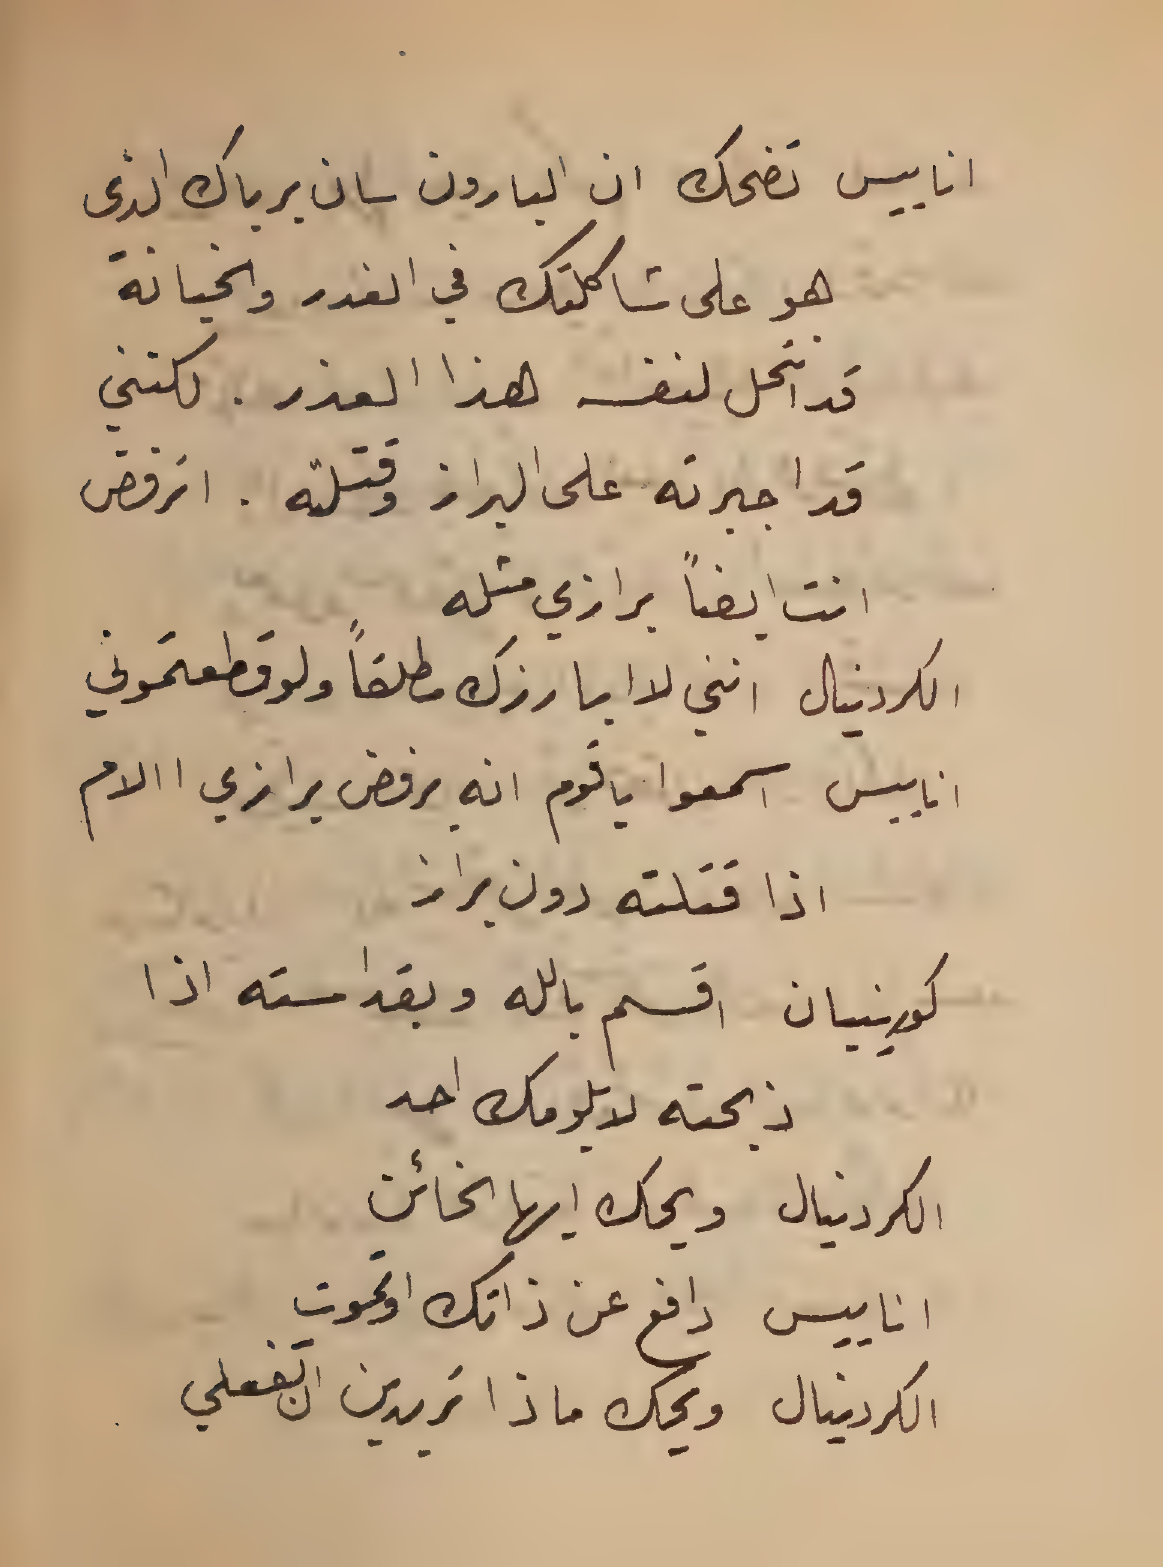 اناييس تضحك ان البارون سان برياك الذي
هو على شاكلتك في الغدر والخيانة
قد انتحل لنفسه هذا العذر . لكنني
قد اجبرته على البراز وقتلته . اترفض
انت ايضاً برازي مثله
الكردنيال انني لا ابارزك مطلقاً ولو قطعتموني
اناييس اسمعوا يا قوم انه يرفض برازي االام
اذا قتلته دون براز
كورينيان اقسم بالله وبقداسته اذا
ذبحته لا يلومك احد
الكردنيال ويحك ايها الخائن
اناييس دافع عن ذاتك او تموت
الكردنيال ويحك ماذا تريدين ان تفعلي